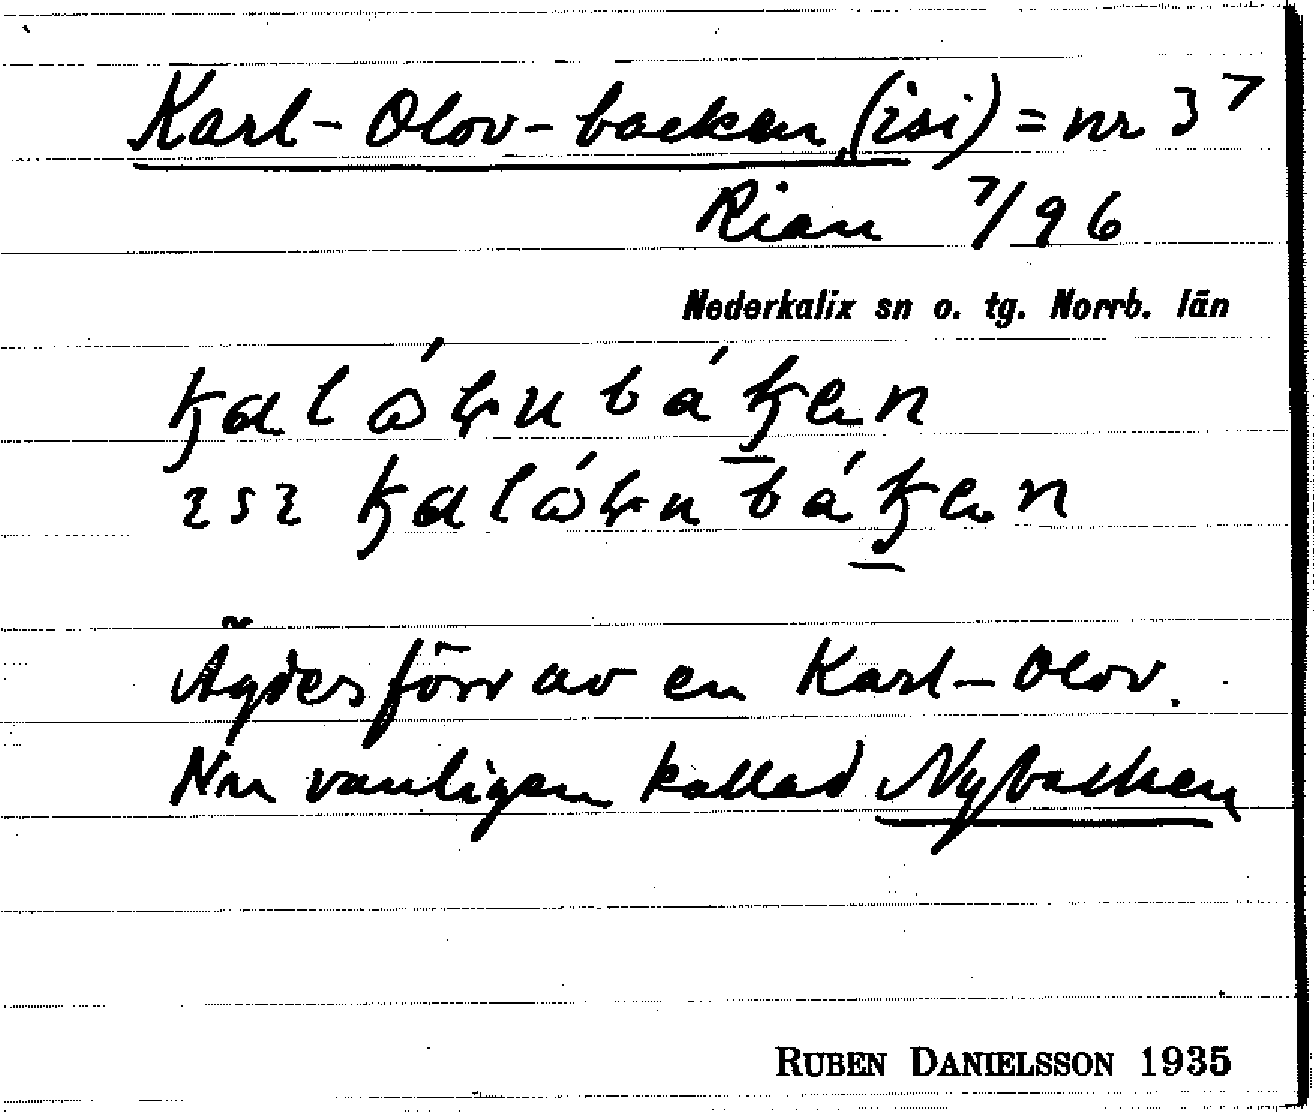 Karl-Olov-backen, (isi) = nr 37
Rian 7/96
Nederkalix sn o. tg. Norrb. län
Ägdes förr av en Karl-Olov.
Nu vanligen kallad Nybacken
RUBEN DANIELSSON 1935